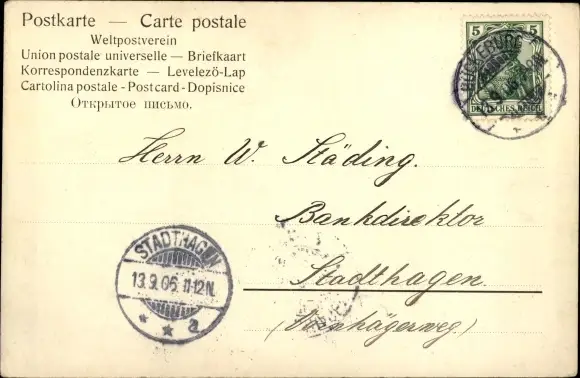 Postkarte — Carte postale
Weltpostverein
Union postale universelle — Briefkaart
Korrespondenzkarte — Levelező-Lap
Cartolina postale - Postcard - Dopisnice
Открытое письмо.
5 5
BÜCKEBURG
DEUTSCHES REICH
Herrn W. Städing.
Bankdirektor
Stadthagen.
STADTHAGEN
13.9.06. 11-12N.
* * a